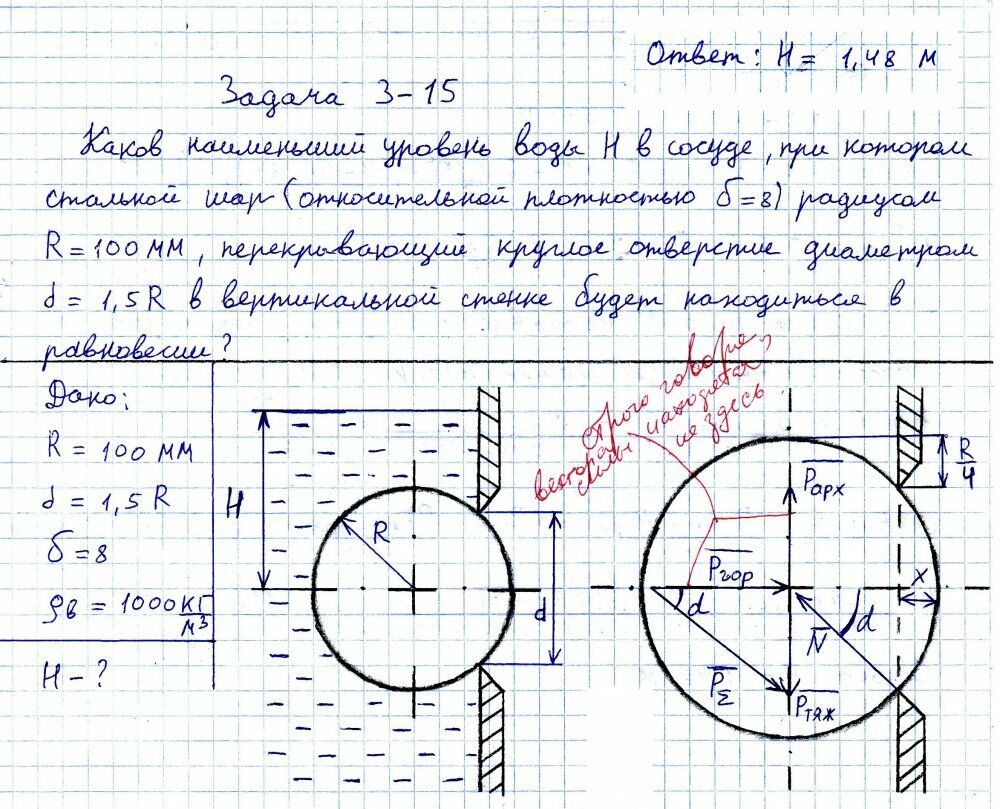 Ответ: H = 1,48 м
Задача 3-15
Каков наименьший уровень воды H в сосуде, при котором
стальной шар (относительной плотностью δ=8) радиусом
R = 100 мм, перекрывающий круглое отверстие диаметром
d = 1,5 R в вертикальной стенке будет находиться в
равновесии?
Дано:
R = 100 мм
d = 1,5 R
δ = 8
ρв = 1000 кг/м³
H - ?
H
R
d
строго говоря,
вектора находятся
силы не здесь
Pарх
R/4
Pгор
x
α
α
N
PΣ
Pтяж